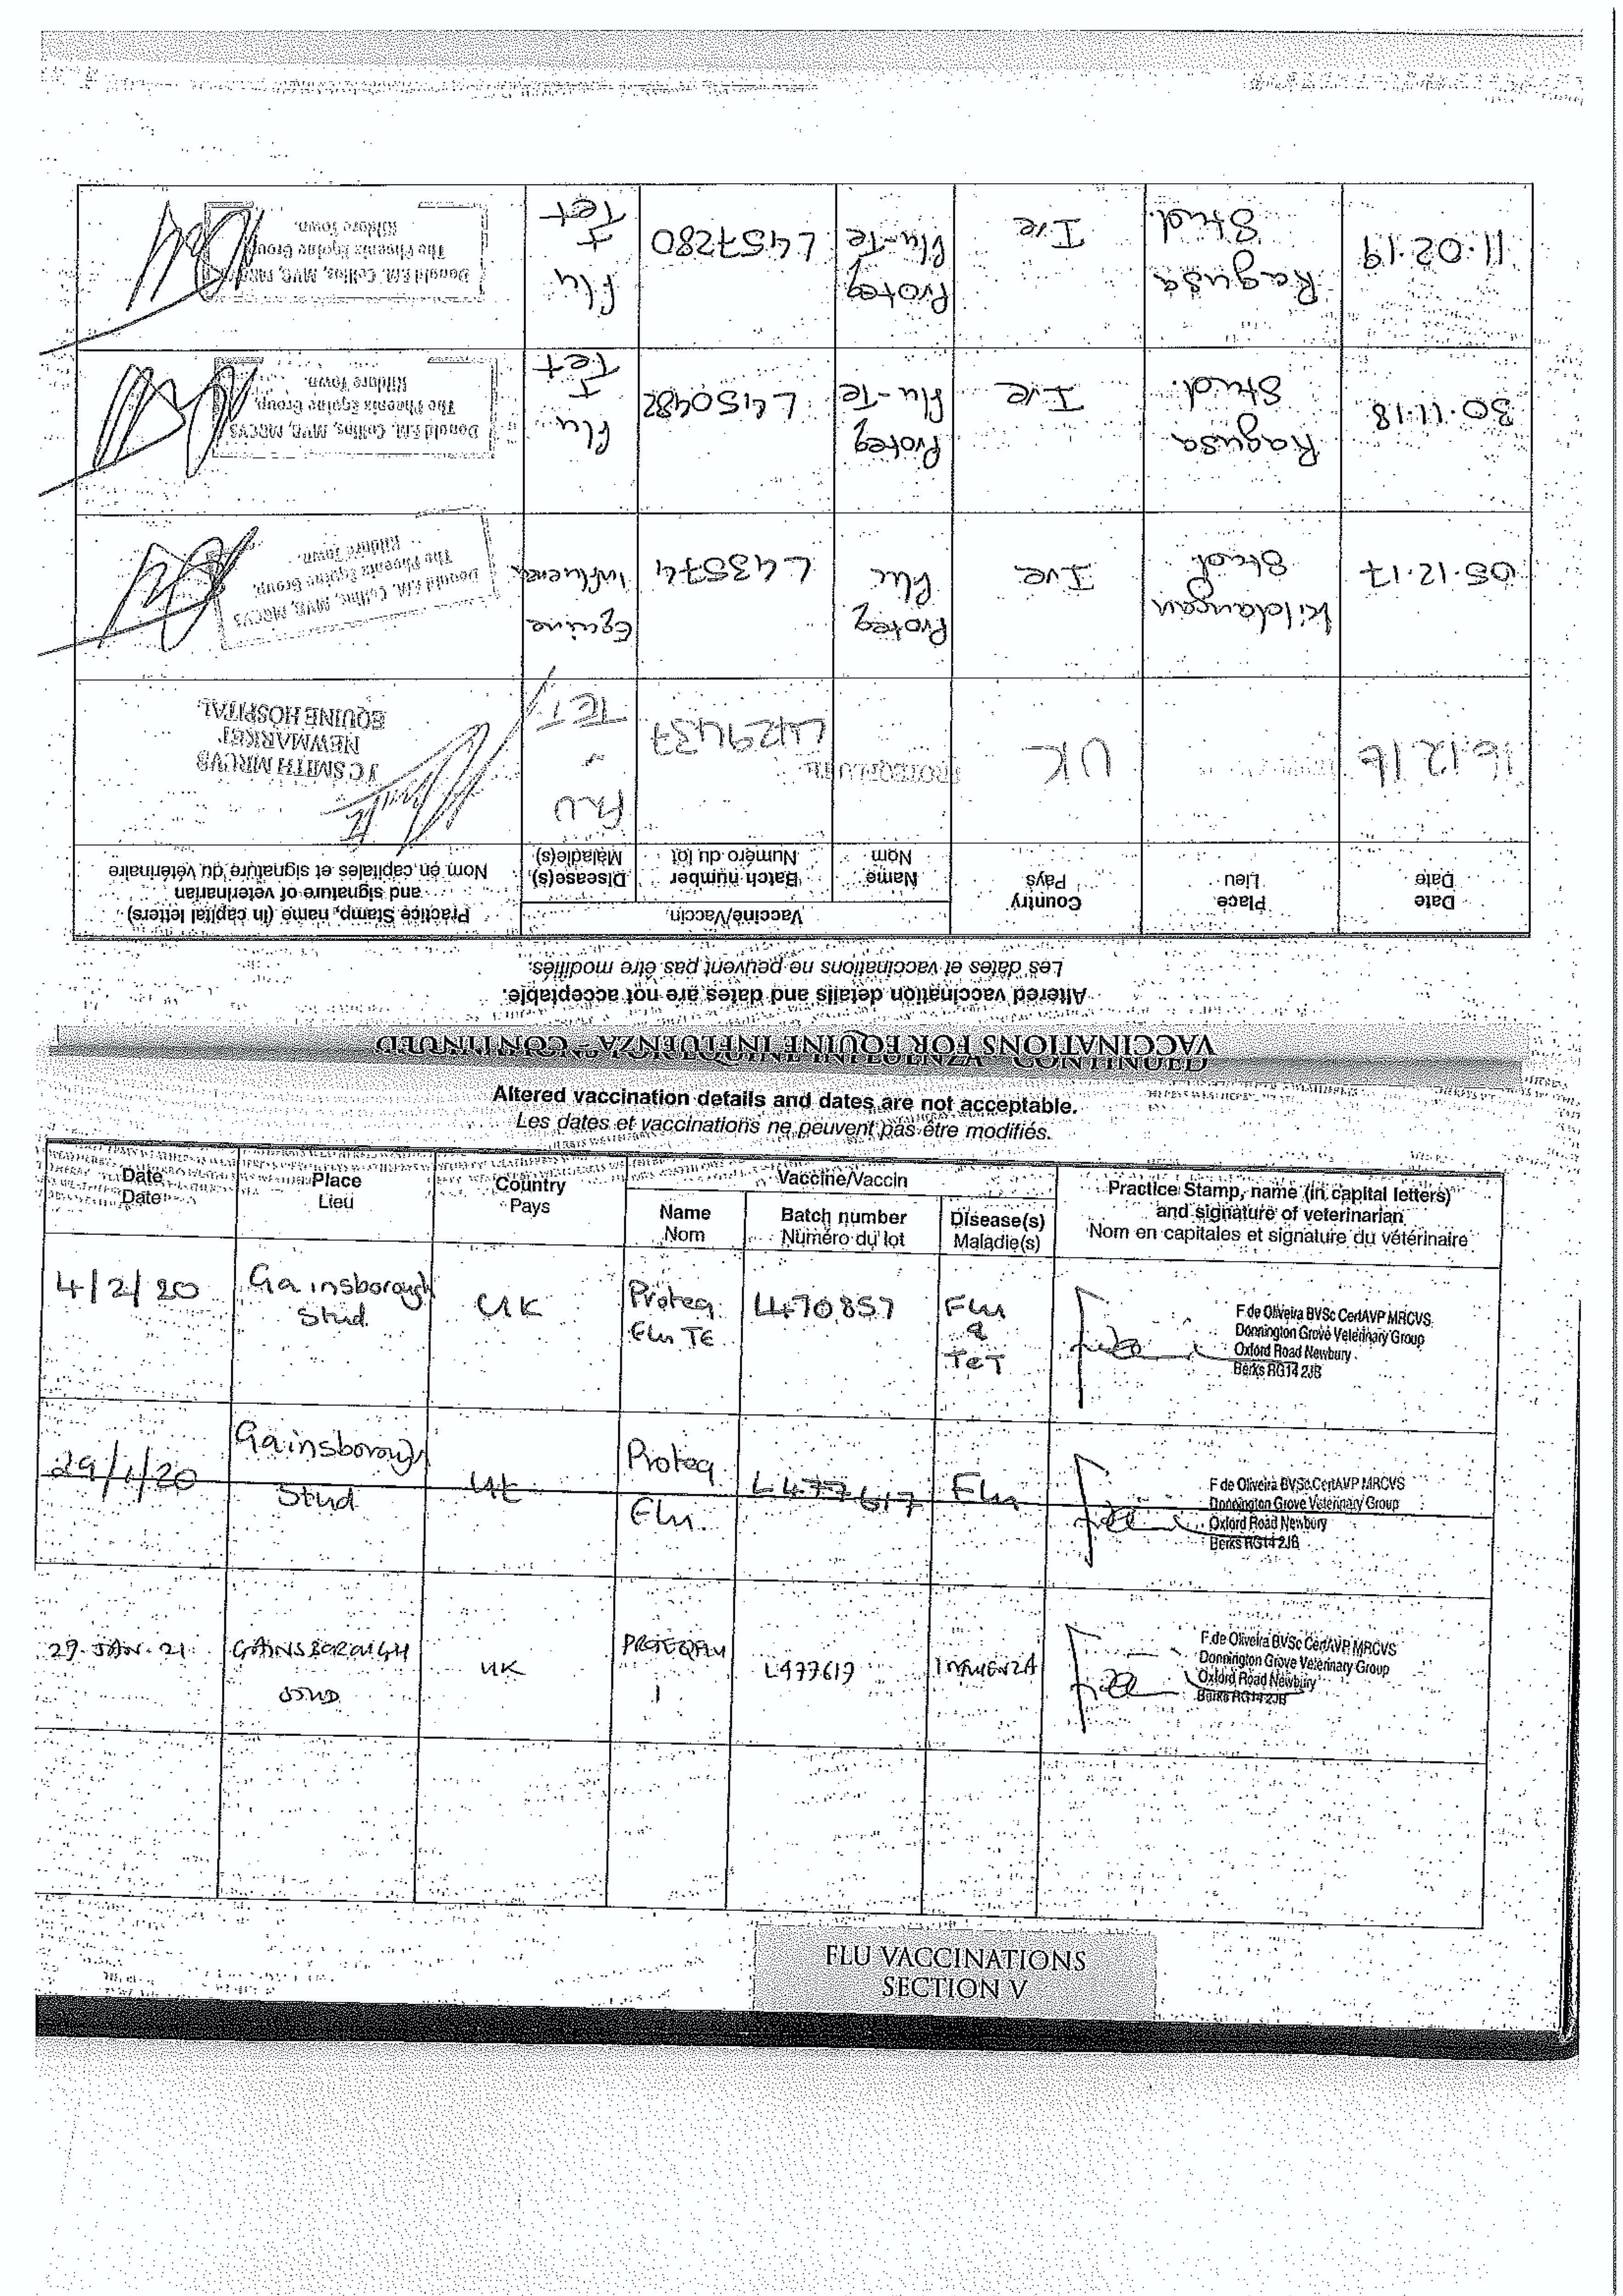 VACCINATIONS FOR EQUINE INFLUENZA - CONTINUED
Altered vaccination details and dates are not acceptable.
Les dates et vaccinations ne peuvent pas être modifiés.
Date
Date
Place
Lieu
Country
Pays
Vaccine/Vaccin
Name
Nom
Batch number
Numéro du lot
Disease(s)
Maladie(s)
Practice Stamp, name (in capital letters)
and signature of veterinarian
Nom en capitales et signature du vétérinaire
16.12.16
UK
PROTEQFLU TE
L429437
FLU
TET
J C SMITH MRCVS
NEWMARKET
EQUINE HOSPITAL
05.12.17
Kildangan
Stud.
Ire
Proteq
flu
L43574
Equine
Influenza
Donald F.M. Collins, MVB, MRCVS
The Phoenix Equine Group,
Kildare Town.
30.11.18
Ragusa
Stud.
Ire
Proteq
flu-Te
L450482
flu
+
Tet
Donald F.M. Collins, MVB, MRCVS
The Phoenix Equine Group,
Kildare Town.
11.02.19
Ragusa
Stud.
Ire
Proteq
flu-Te
L457280
Flu
+
Tet
Donald F.M. Collins, MVB, MRCVS
The Phoenix Equine Group
Kildare Town.
Altered vaccination details and dates are not acceptable.
Les dates et vaccinations ne peuvent pas être modifiés.
Date
Date
Place
Lieu
Country
Pays
Vaccine/Vaccin
Name
Nom
Batch number
Numéro du lot
Disease(s)
Maladie(s)
Practice Stamp, name (in capital letters)
and signature of veterinarian
Nom en capitales et signature du vétérinaire
4/2/20
Gainsborough
Stud
UK
Proteq
Flu TE
L470857
Flu
&
TET
F de Oliveira BVSc CertAVP MRCVS
Donnington Grove Veterinary Group
Oxford Road Newbury
Berks RG14 2JB
29/1/20
Gainsborough
Stud
UK
Proteq
Flu
L477617
Flu
F de Oliveira BVSc CertAVP MRCVS
Donnington Grove Veterinary Group
Oxford Road Newbury
Berks RG14 2JB
29.JAN.21
GAINSBOROUGH
STUD
UK
PROTEQFLU
L477619
INFLUENZA
F de Oliveira BVSc CertAVP MRCVS
Donnington Grove Veterinary Group
Oxford Road Newbury
Berks RG14 2JB
FLU VACCINATIONS
SECTION V